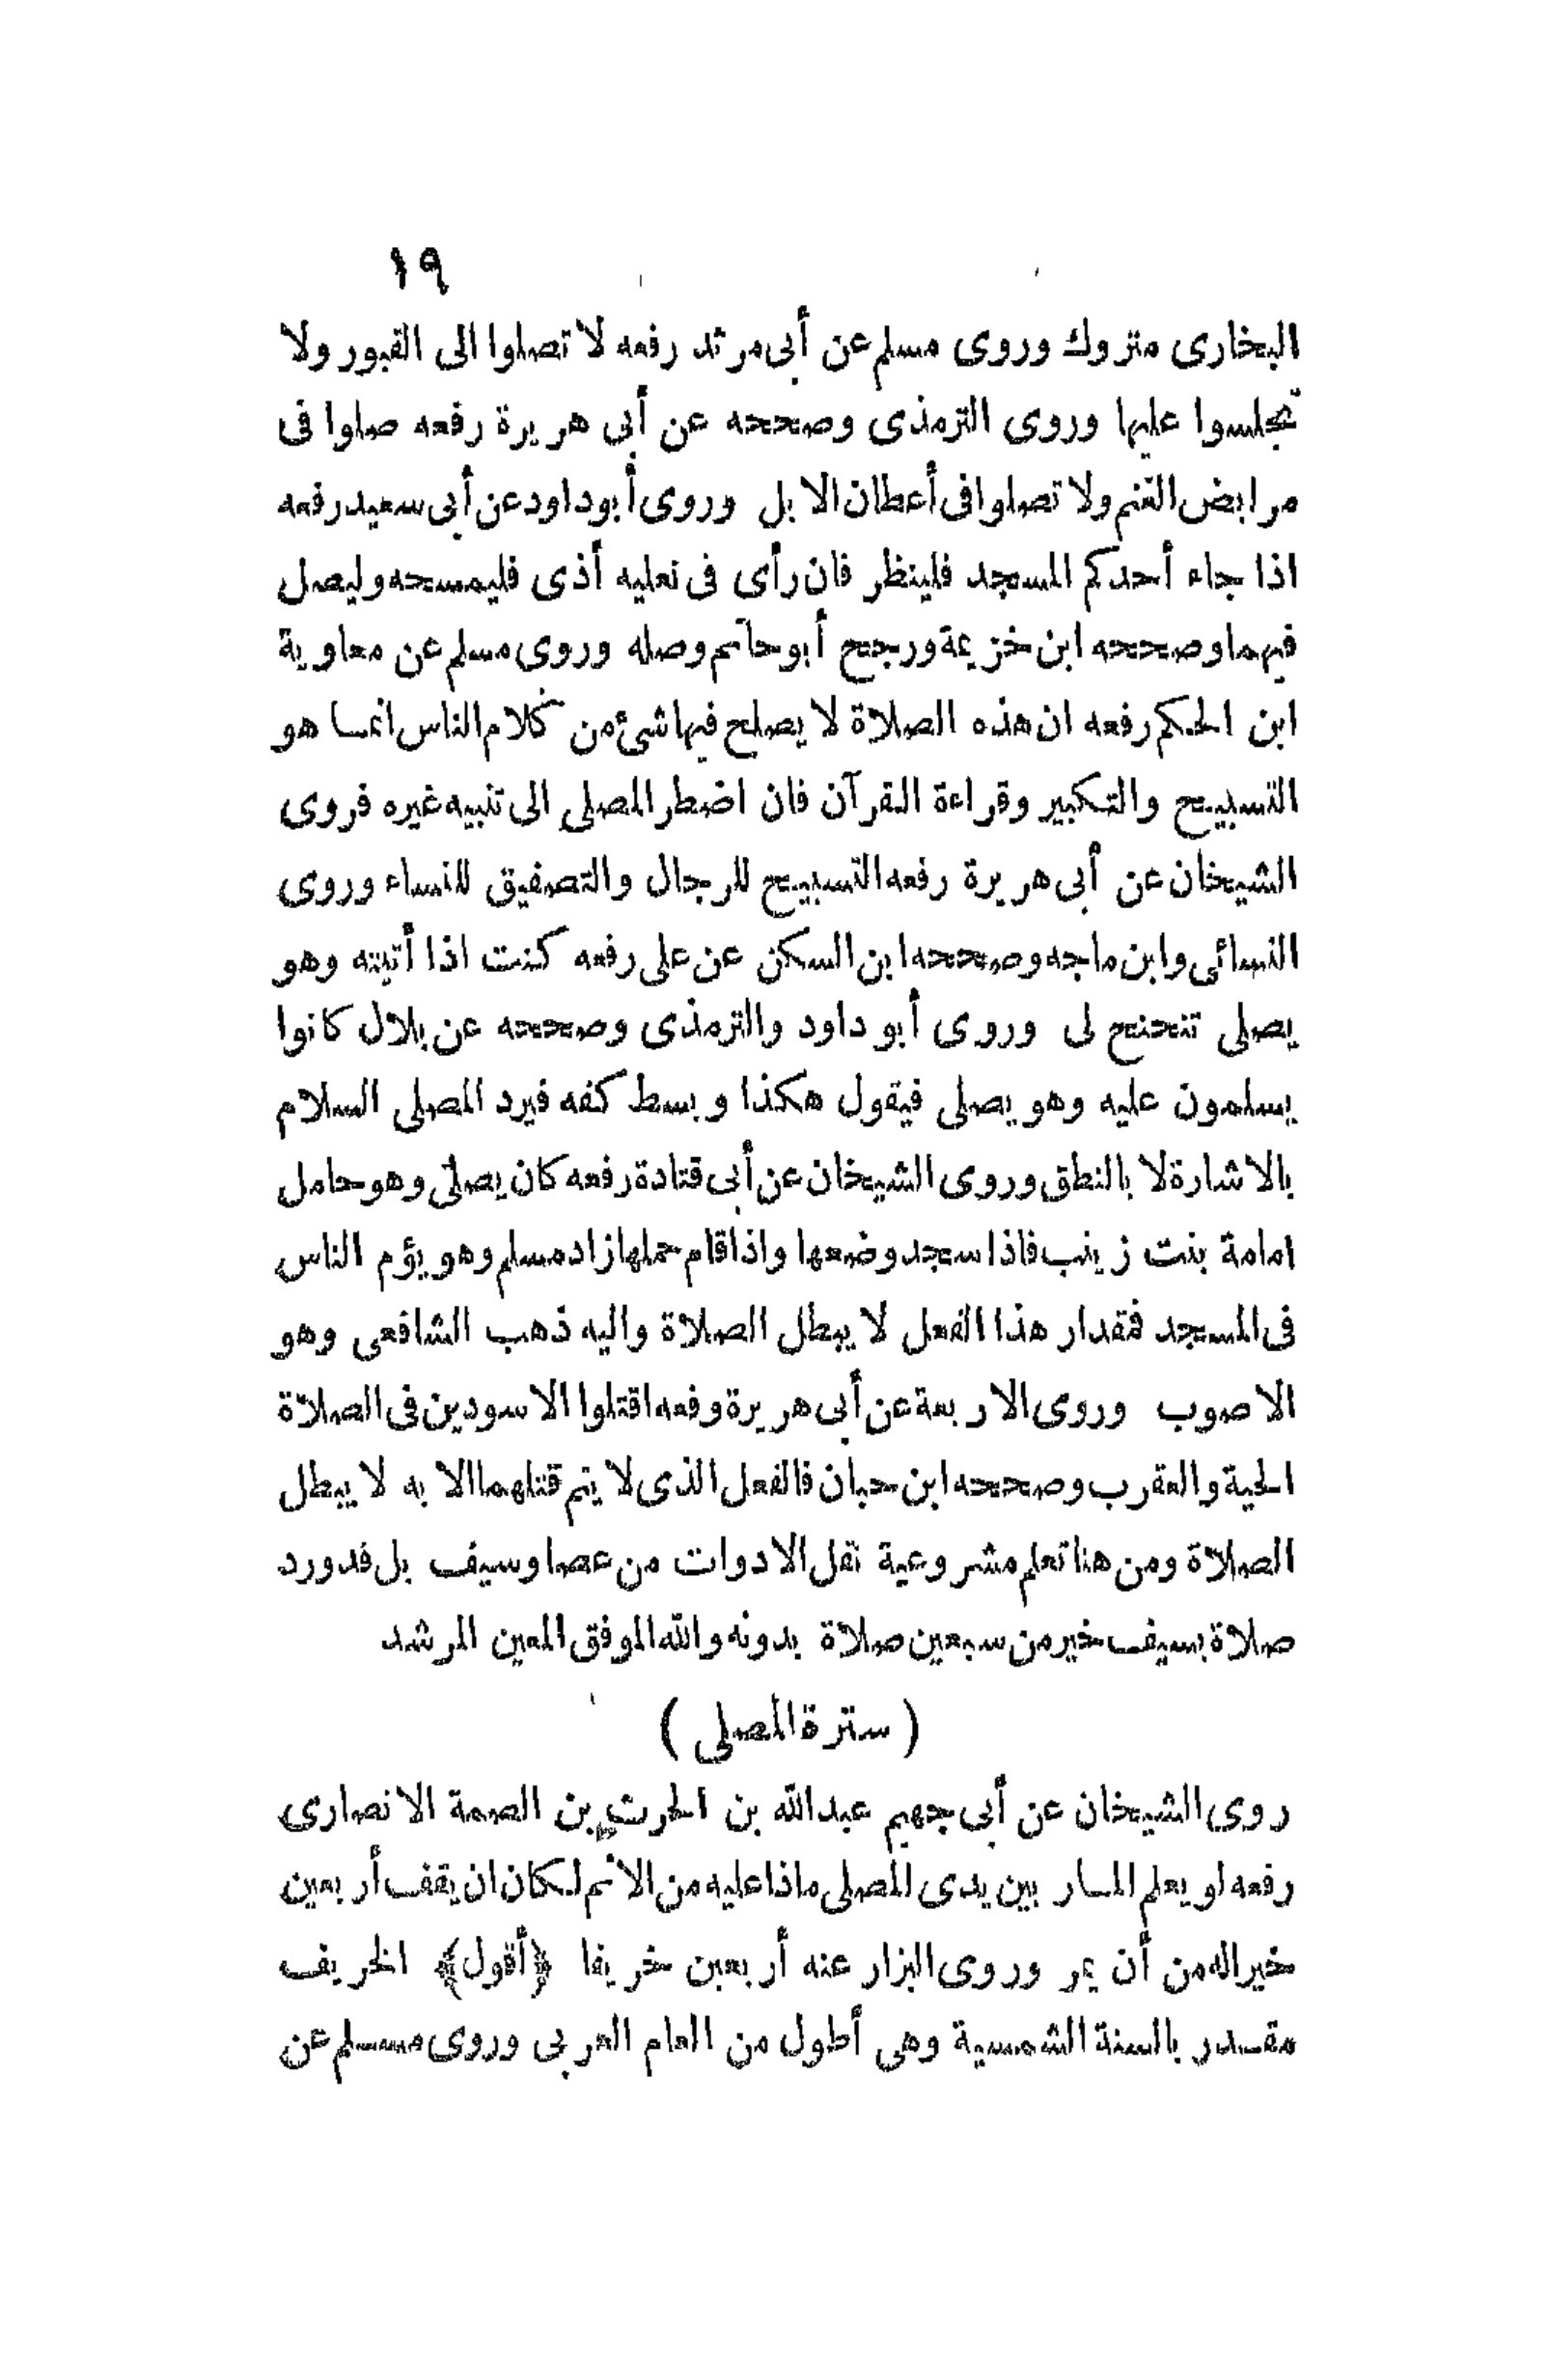 ١٩
البخارى متروك وروى مسلم عن أبى مرثد رفعه لا تصلوا الى القبور ولا
تجلسوا عليها وروى الترمذى وصححه عن أبى هريرة رفعه صلوا فى
مرابض الغنم ولا تصلوا فى أعطان الابل وروى أبوداود عن أبى سعيد رفعه
اذا جاء أحدكم المسجد فلينظر فان رأى فى نعليه أذى فليمسحه وليصل
فيهما وصححه ابن خزيمة ورجح أبوحاتم وصله وروى مسلم عن معاوية
ابن الحكم رفعه ان هذه الصلاة لا يصلح فيها شئ من كلام الناس انما هو
التسبيح والتكبير وقراءة القرآن فان اضطر المصلى الى تنبيه غيره فروى
الشيخان عن أبى هريرة رفعه التسبيح للرجال والتصفيق للنساء وروى
النسائى وابن ماجه وصححه ابن السكن عن على رفعه كنت اذا أتيته وهو
يصلى تنحنح لى وروى أبو داود والترمذى وصححه عن بلال كانوا
يسلمون عليه وهو يصلى فيقول هكذا وبسط كفه فيرد المصلى السلام
بالاشارة لا بالنطق وروى الشيخان عن أبى قتادة رفعه كان يصلى وهو حامل
امامة بنت زينب فاذا سجد وضعها واذا قام حملها زاد مسلم وهو يؤم الناس
فى المسجد فقدار هذا الفعل لا يبطل الصلاة واليه ذهب الشافعى وهو
الاصوب وروى الاربعة عن أبى هريرة وفعه اقتلوا الاسودين فى الصلاة
الحية والعقرب وصححه ابن حبان فالفعل الذى لا يتم قتلهما الا به لا يبطل
الصلاة ومن هنا تعلم مشروعية نقل الادوات من عصا وسيف بل قد ورد
صلاة بسيف خير من سبعين صلاة بدونه والله الموفق المعين المرشد
(سترة المصلى)
روى الشيخان عن أبى جهيم عبدالله بن الحرث بن الصمة الانصارى
رفعه لو يعلم المار بين يدى المصلى ماذا عليه من الاثم لكان ان يقف أربعين
خيرا له من أن يمر وروى البزار عنه أربعين خريفا ﴿أقول﴾ الخريف
مقدر بالسنة الشمسية وهى أطول من العام العربى وروى مسلم عن